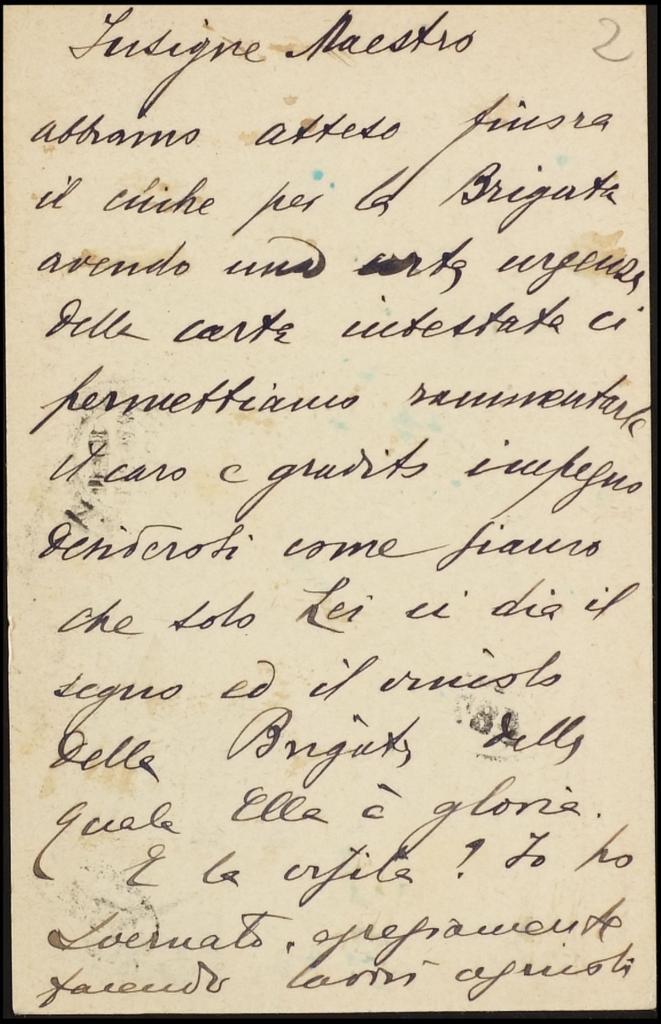 2
Insigne Maestro
abbiamo atteso finora
il cliché per la Brigata
avendo una certa urgenza
della carta intestata ci
permettiamo rammentarle
il caro e gradito impegno
desiderosi come siamo
che solo Lei ci dia il
segno ed il vincolo
della Brigata della
quale Ella è gloria.
E la visita? Io ho
svernato egregiamente
facendo lavori agricoli